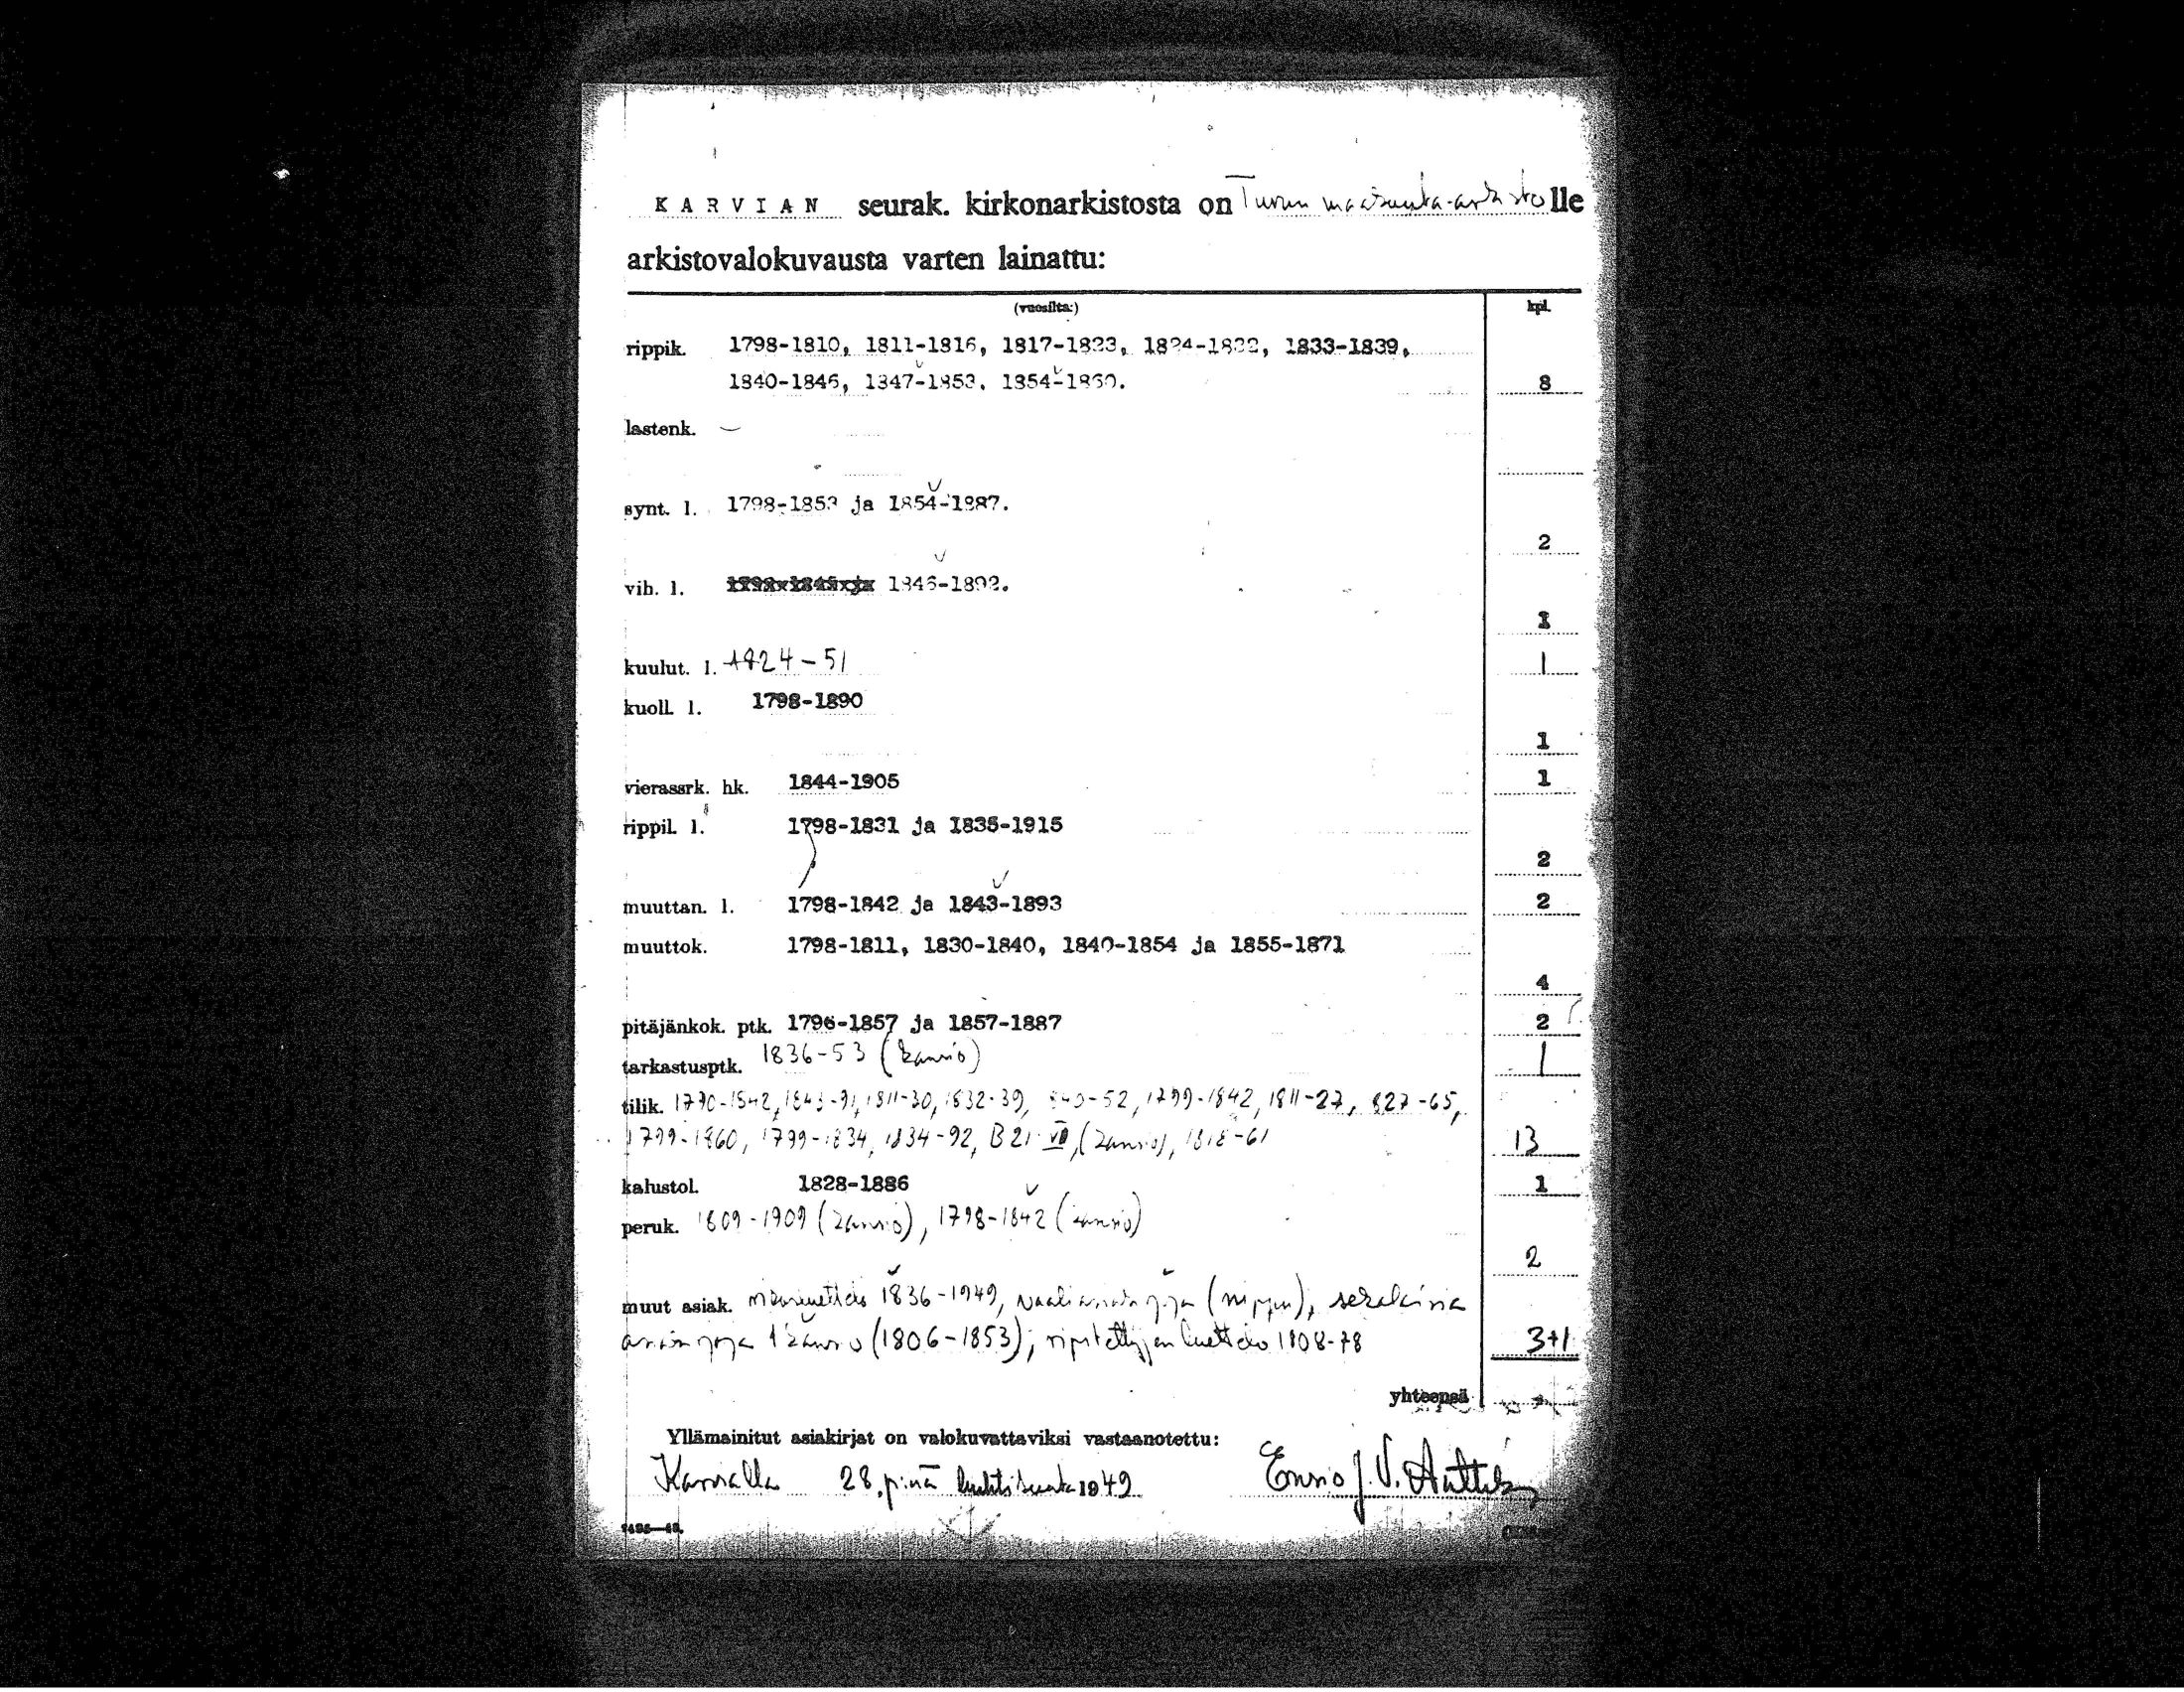 KARVIAN seurak. kirkonarkistosta on Turun maakunta-arkistolle
arkistovalokuvausta varten lainattu:
(vuosilta:) kpl.
rippik. 1798-1810, 1811-1816, 1817-1823, 1824-1832, 1833-1839,
1840-1846, 1847-1853. 1854-1860. 8
lastenk. —
synt. l. 1798-1853 ja 1854-1887.
2
vih. l. 1846-1892.
1
kuulut. l. 1824-51 1
kuoll. l. 1798-1890
1
vierassrk. hk. 1844-1905 1
rippil. l. 1798-1831 ja 1835-1915
2
muuttan. l. 1798-1842 ja 1843-1893 2
muuttok. 1798-1811, 1830-1840, 1840-1854 ja 1855-1871
4
pitäjänkok. ptk. 1796-1857 ja 1857-1887 2
tarkastusptk. 1836-53 (kansio) 1
tilik. 1811-30, 1832-39, 1799-1842, 1811-27, 827-65,
1799-1860, 1799-1834, 1834-92, B 21 VII, (kansio), 13
kalustol. 1828-1886 1
peruk. 1809-1909 (kansio), 1798-1842 (kansio)
2
muut asiak. 1836-1949, vaaliasiakirjoja (nippu), sekalaisia
asiakirjoja 1 kansio (1806-1853); ripitettyjen luettelo 1808-78 3+1
yhteensä
Yllämainitut asiakirjat on valokuvattaviksi vastaanotettu:
Karvialla 28. p:nä huhtikuuta 1949 Ensio J. V.